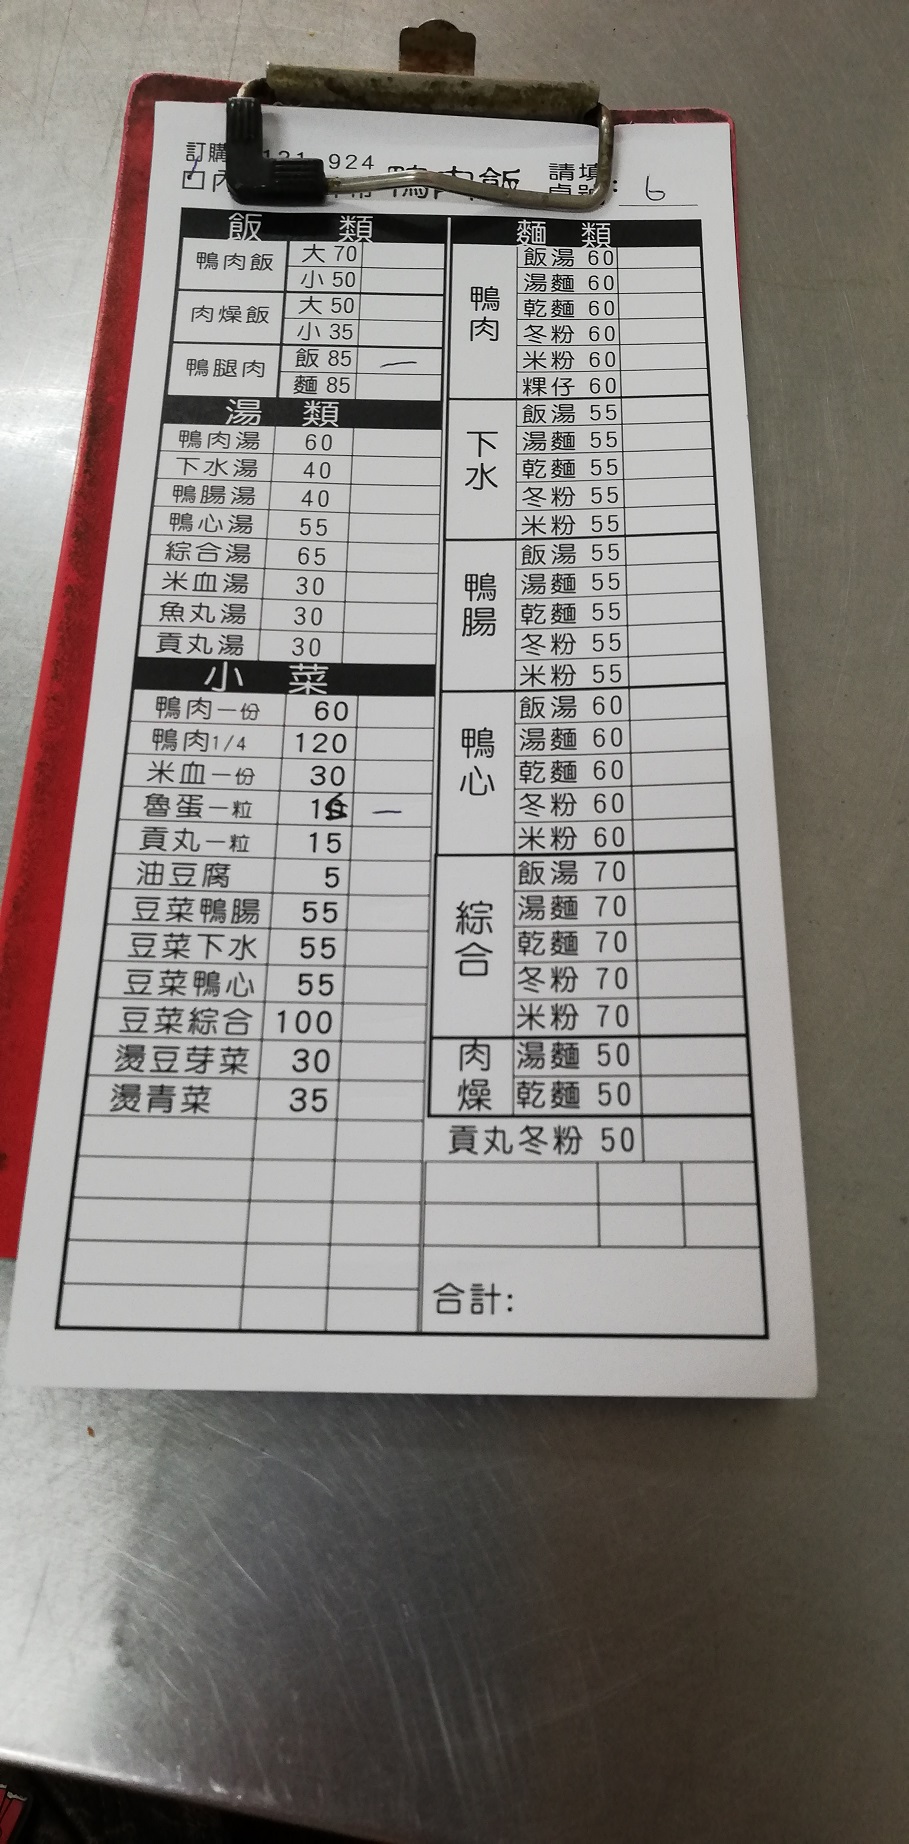 924
鴨肉飯 請填
6
飯類
鴨肉飯 大 70
小 50
肉燥飯 大 50
小 35
鴨腿肉 飯 85 一
麵 85
湯類
鴨肉湯 60
下水湯 40
鴨腸湯 40
鴨心湯 55
綜合湯 65
米血湯 30
魚丸湯 30
貢丸湯 30
小菜
鴨肉一份 60
鴨肉1/4 120
米血一份 30
魯蛋一粒 一
貢丸一粒 15
油豆腐 5
豆菜鴨腸 55
豆菜下水 55
豆菜鴨心 55
豆菜綜合 100
燙豆芽菜 30
燙青菜 35
麵類
鴨肉
飯湯 60
湯麵 60
乾麵 60
冬粉 60
米粉 60
粿仔 60
下水
飯湯 55
湯麵 55
乾麵 55
冬粉 55
米粉 55
鴨腸
飯湯 55
湯麵 55
乾麵 55
冬粉 55
米粉 55
鴨心
飯湯 60
湯麵 60
乾麵 60
冬粉 60
米粉 60
綜合
飯湯 70
湯麵 70
乾麵 70
冬粉 70
米粉 70
肉燥
湯麵 50
乾麵 50
貢丸冬粉 50
合計: